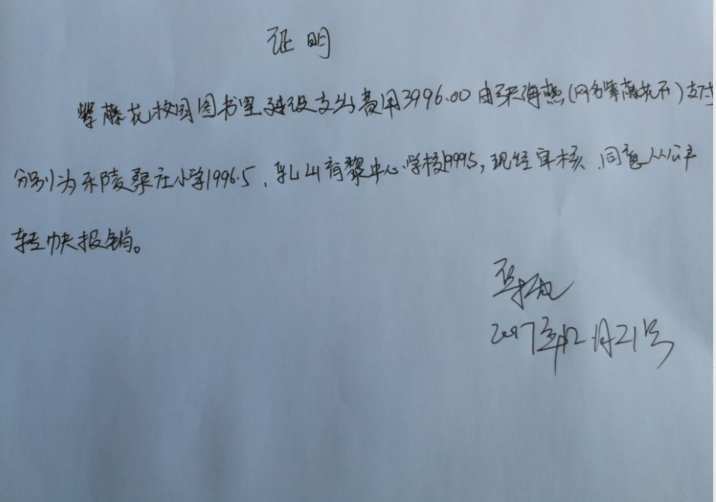 证明
紫藤花校园图书室建设支出费用3996.00由 海燕(网名紫藤花开)支付
分别为乐陵 庄小学1996.5、乳山育黎中心学校1999.5,现经审核、同意从公户
转帐报销。
2017年12月21号